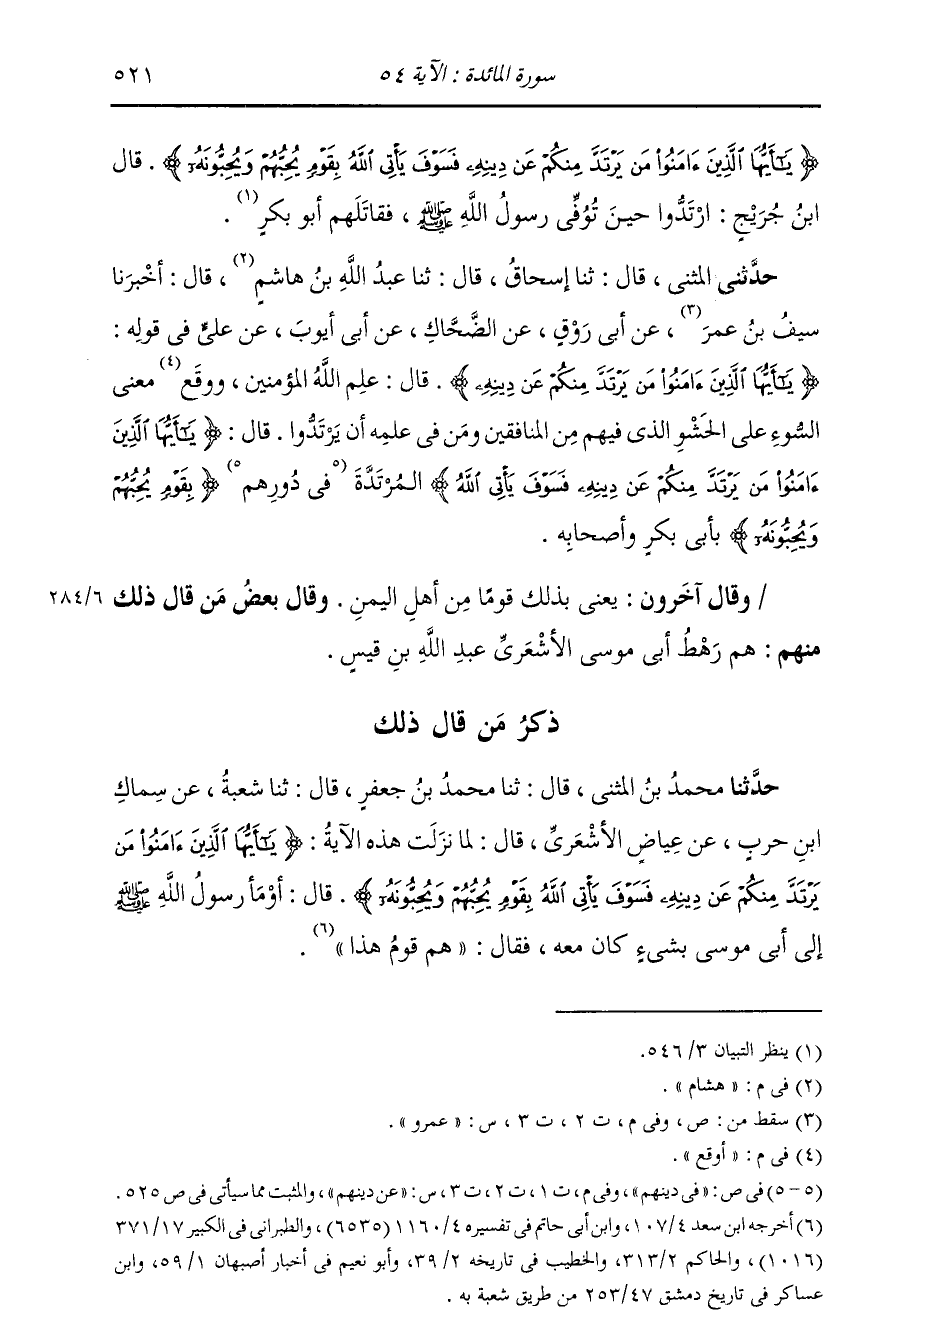 سورة المائدة : الآية ٥٤ ٥٢١
﴿ يَٰٓأَيُّهَا ٱلَّذِينَ ءَامَنُوا۟ مَن يَرْتَدَّ مِنكُمْ عَن دِينِهِۦ فَسَوْفَ يَأْتِى ٱللَّهُ بِقَوْمٍ يُحِبُّهُمْ وَيُحِبُّونَهُۥٓ ﴾ . قال
ابنُ جُرَيْجٍ : ارْتَدُّوا حينَ تُوُفِّى رسولُ اللَّهِ ﷺ ، فقاتَلَهم أبو بكرٍ(١) .
حدَّثنى المثنى ، قال : ثنا إسحاقُ ، قال : ثنا عبدُ اللَّهِ بنُ هاشمٍ(٢) ، قال : أخْبرَنا
سيفُ بنُ عمرَ(٣) ، عن أبى رَوْقٍ ، عن الضَّحَّاكِ ، عن أبى أيوبَ ، عن علىٍّ فى قولِه :
﴿ يَٰٓأَيُّهَا ٱلَّذِينَ ءَامَنُوا۟ مَن يَرْتَدَّ مِنكُمْ عَن دِينِهِۦ ﴾ . قال : علِم اللَّهُ المؤمنين ، ووقَع(٤) معنى
السُّوءِ على الحَشْوِ الذى فيهم مِن المنافقين ومَن فى علمِه أن يَرْتَدُّوا . قال : ﴿ يَٰٓأَيُّهَا ٱلَّذِينَ
ءَامَنُوا۟ مَن يَرْتَدَّ مِنكُمْ عَن دِينِهِۦ فَسَوْفَ يَأْتِى ٱللَّهُ ﴾ المُرْتَدَّةَ (٥فى دُورِهم٥) ﴿ بِقَوْمٍ يُحِبُّهُمْ
وَيُحِبُّونَهُۥٓ ﴾ بأبى بكرٍ وأصحابِه .
/ وقال آخَرون : يعنى بذلك قومًا مِن أهلِ اليمنِ . وقال بعضُ مَن قال ذلك ٢٨٤/٦
منهم : هم رَهْطُ أبى موسى الأشْعَرىِّ عبدِ اللَّهِ بنِ قيسٍ .
ذكرُ مَن قال ذلك
حدَّثنا محمدُ بنُ المثنى ، قال : ثنا محمدُ بنُ جعفرٍ ، قال : ثنا شعبةُ ، عن سِماكِ
ابنِ حربٍ ، عن عِياضٍ الأشْعَرىِّ ، قال : لما نزَلَت هذه الآيةُ : ﴿ يَٰٓأَيُّهَا ٱلَّذِينَ ءَامَنُوا۟ مَن
يَرْتَدَّ مِنكُمْ عَن دِينِهِۦ فَسَوْفَ يَأْتِى ٱللَّهُ بِقَوْمٍ يُحِبُّهُمْ وَيُحِبُّونَهُۥٓ ﴾ . قال : أوْمَأ رسولُ اللَّهِ ﷺ
إلى أبى موسى بشىءٍ كان معه ، فقال : « هم قومُ هذا »(٦) .
(١) ينظر التبيان ٣/ ٥٤٦.
(٢) فى م : « هشام » .
(٣) سقط من : ص ، وفى م ، ت ٢ ، ت ٣ ، س : « عمرو » .
(٤) فى م : « أوقع » .
(٥ - ٥) فى ص : « فى دينهم » ، وفى م ، ت ١ ، ت ٢ ، ت ٣ ، س : « عن دينهم » ، والمثبت مما سيأتى فى ص ٥٢٥ .
(٦) أخرجه ابن سعد ٤/ ١٠٧، وابن أبى حاتم فى تفسيره ٤/ ١١٦٠ (٦٥٣٥) ، والطبرانى فى الكبير ١٧/ ٣٧١
(١٠١٦) ، والحاكم ٢/ ٣١٣، والخطيب فى تاريخه ٢/ ٣٩، وأبو نعيم فى أخبار أصبهان ١/ ٥٩، وابن
عساكر فى تاريخ دمشق ٤٧/ ٢٥٣ من طريق شعبة به .